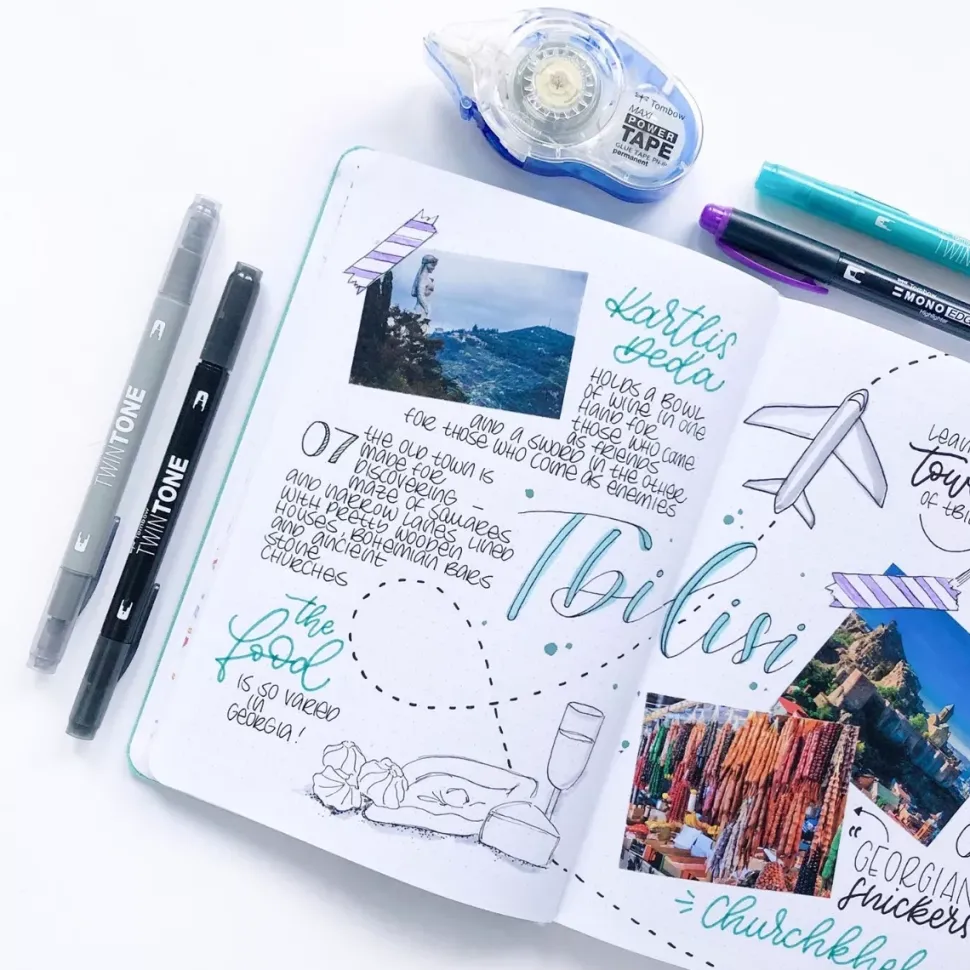 Tombow
MAXI
POWER
TAPE
GLUE TAPE
permanent
TWINTONE
Tombow
TWINTONE
TWIN
Tombow
MONO EDG
Highlighter
Kartlis
Deda
HOLDS A BOWL
OF WINE IN ONE
HAND FOR
THOSE WHO COME
AS FRIENDS
AND A SWORD IN THE OTHER
FOR THOSE WHO COME AS ENEMIES
07
THE OLD TOWN IS
MADE FOR
DISCOVERING –
MAZE OF SQUARES
AND NARROW LANES LINED
WITH PRETTY WOODEN
HOUSES, BOHEMIAN BARS
AND ANCIENT
STONE
CHURCHES
Tbilisi
the
food
IS SO VARIED
IN
GEORGIA!
OF TBI
"GEORGIAN
Snickers
Churchkhel